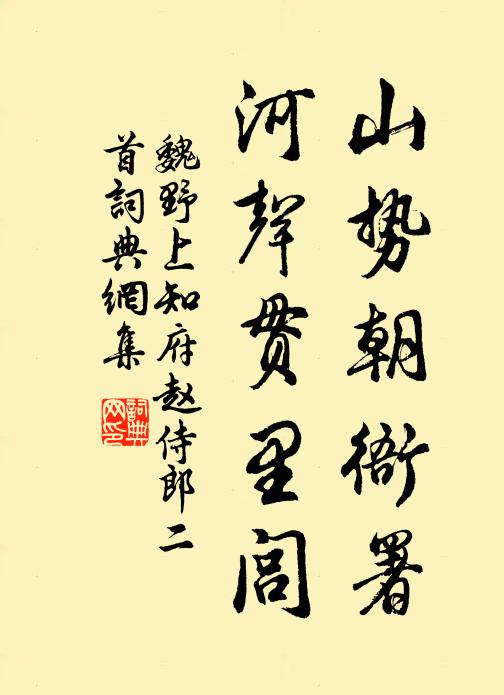 山势朝衙署
河聲貫里閭
魏野上知府赵侍郎二
首詞典網集
詞典网印